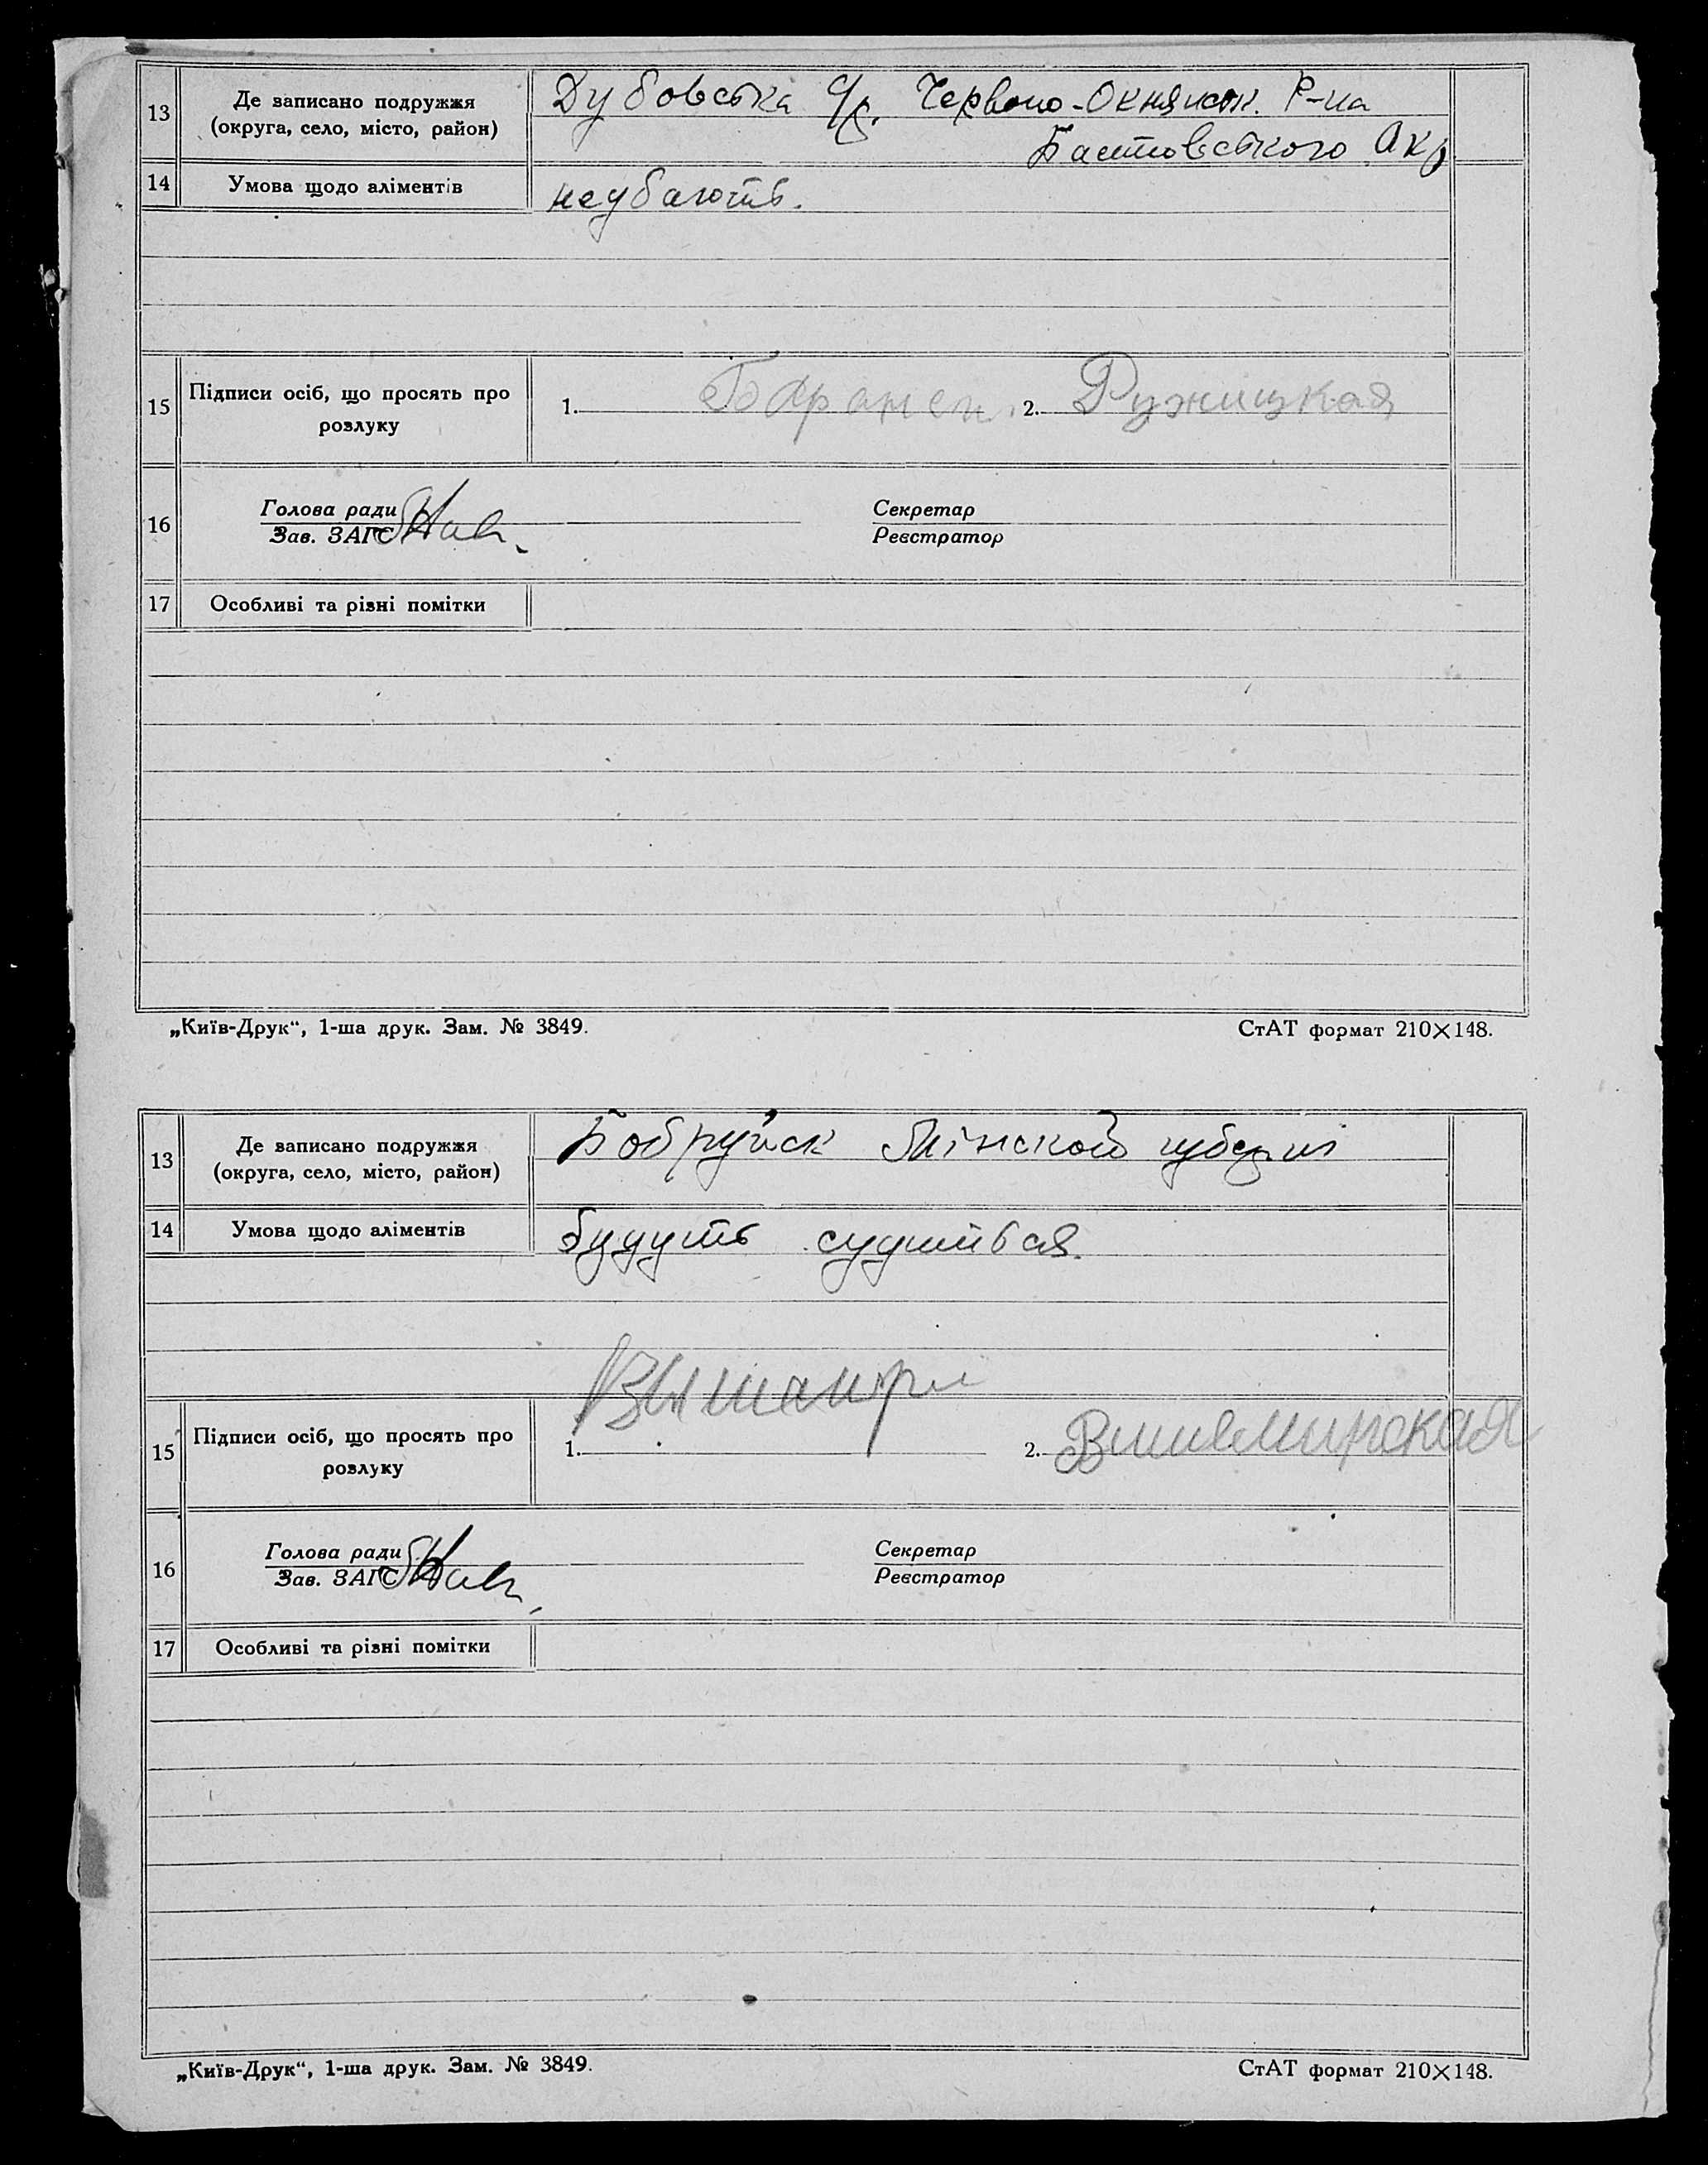 13
Де записано подружжя
(округа, село, місто, район)
Дубовська с/р. Червоно-Окнянськ. Р-на
Балтовського Окр
14
Умова щодо аліментів
неубають.
15
Підписи осіб, що просять про
розлуку
1.
2. Ружицкая
16
Голова ради
Зав. ЗАГС
Секретар
Реєстратор
17
Особливі та різні помітки
„Київ-Друк“, 1-ша друк. Зам. № 3849.
СтАТ формат 210×148.
13
Де записано подружжя
(округа, село, місто, район)
Бобруйск Мінской губерні
14
Умова щодо аліментів
будуть судиться.
15
Підписи осіб, що просять про
розлуку
1.
2.
16
Голова ради
Зав. ЗАГС
Секретар
Реєстратор
17
Особливі та різні помітки
„Київ-Друк“, 1-ша друк. Зам. № 3849.
СтАТ формат 210×148.